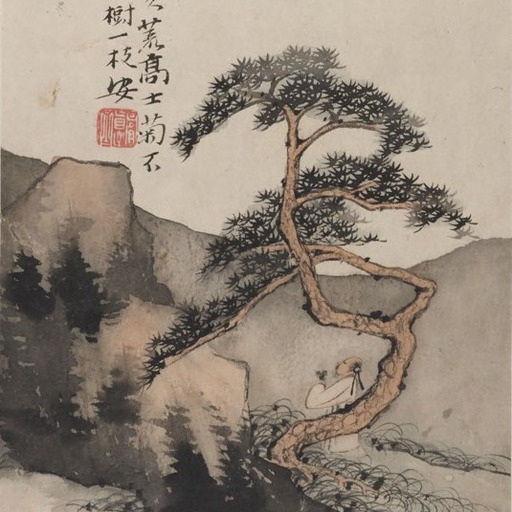 荒高士菊不
樹一枝安